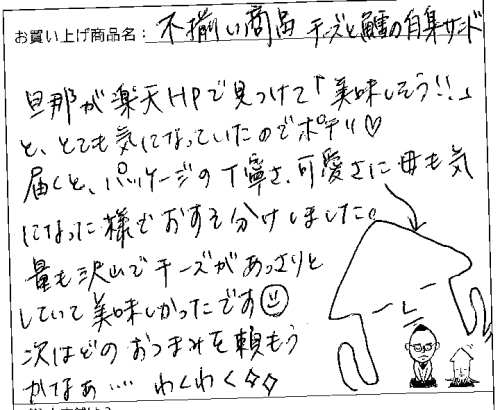 お買い上げ商品名: 不揃い商品 チーズと鱈の白身サンド
旦那が楽天HPで見つけて「美味しそう!!」
と、とても気になっていたのでポチリ♡
届くと、パッケージの丁寧さ、可愛さに母も気
になった様でおすそ分けしました。
量も沢山でチーズがあっさりと
していて美味しかったです☺
次はどのおつまみを頼もう
かなぁ…. わくわく☆☆